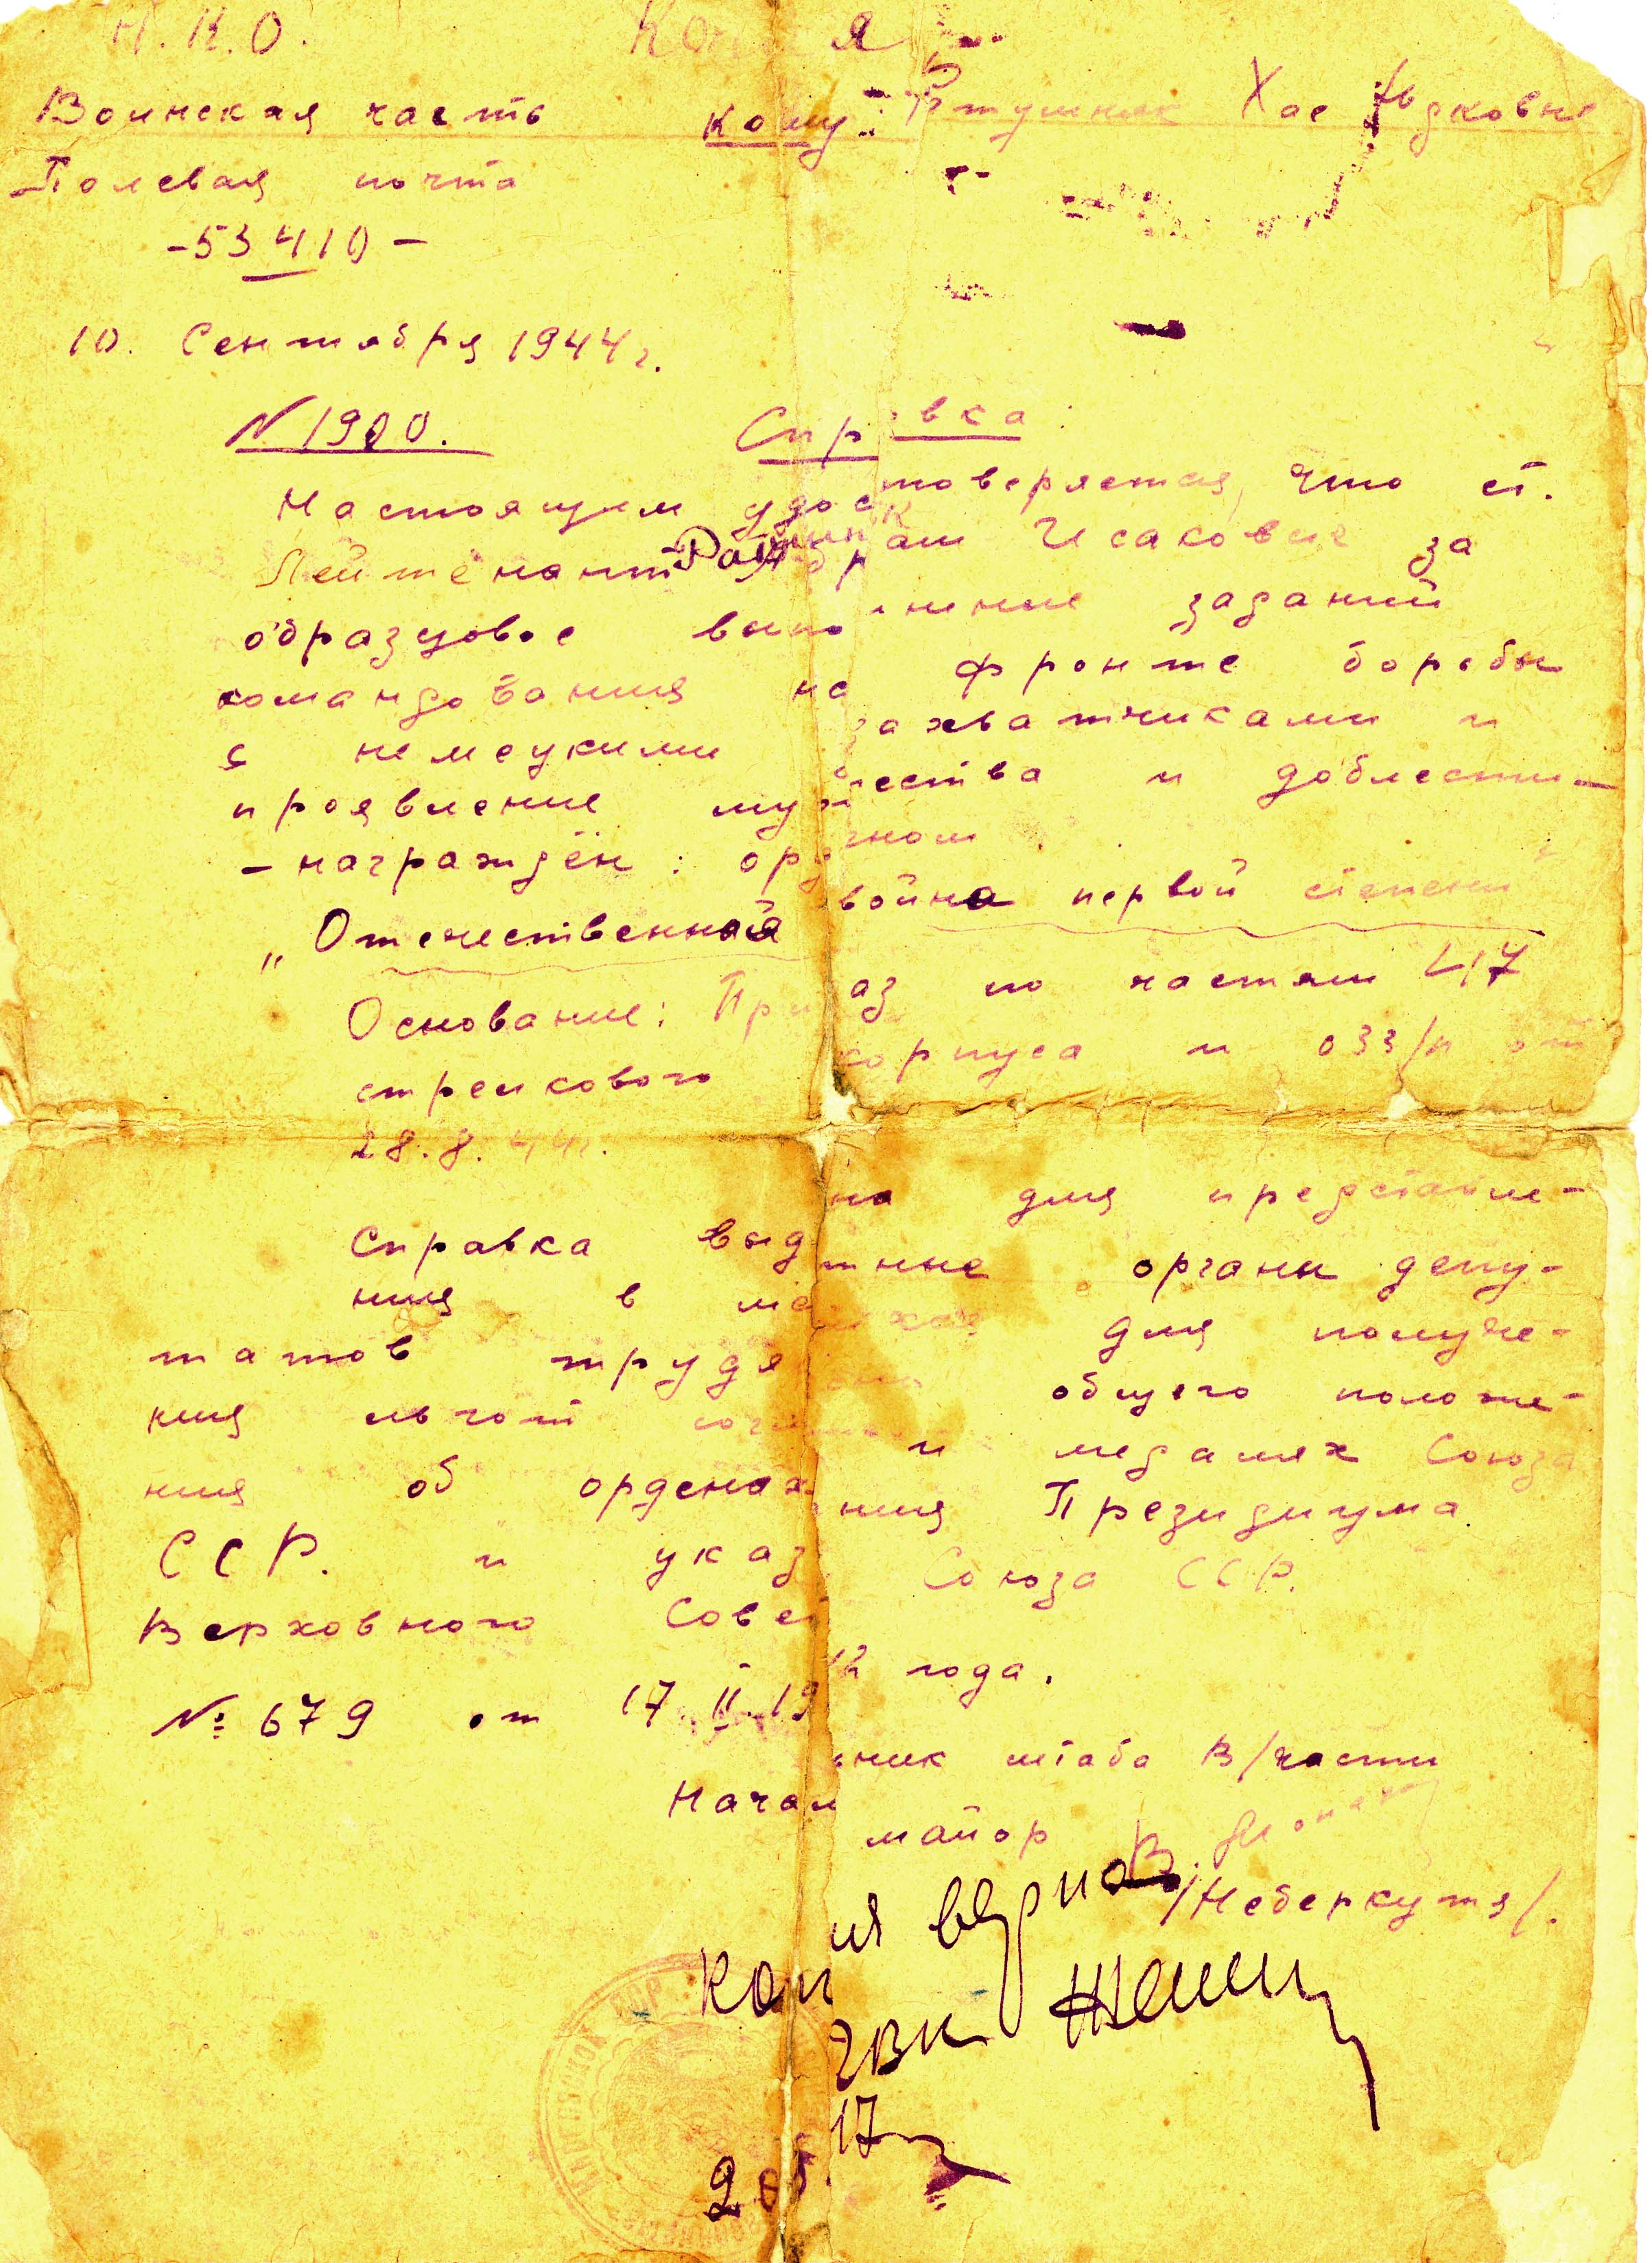 Н.К.О. Копия
Воинская часть Кому: Хае Юдковне
Полевая почта
-53410-
10. Сентября 1944 г.
N 1900. Справка
Настоящим удостоверяется, что ст.
Лейтенант Исакович за
образцовое выполнение заданий
командования на фронте борьбы
с немецкими захватчиками и
проявление мужества и доблести-
- награждён: орденом
„Отечественная война первой степени
Основание: Приказ по частям 417
стрелкового корпуса н 033/н от
28.8.44г.
Справка выдана для представле-
ния в местные органы депу-
татов трудящихся для получе-
ния льгот согласно общего положе-
ния об орденах и медалях Союза
ССР. и указания Президиума
Верховного Совета Союза ССР.
№ 679 от 17.II.1942 года.
Начальник штаба В/части
майор
/Неберкутз/.
Копия верна
2 17